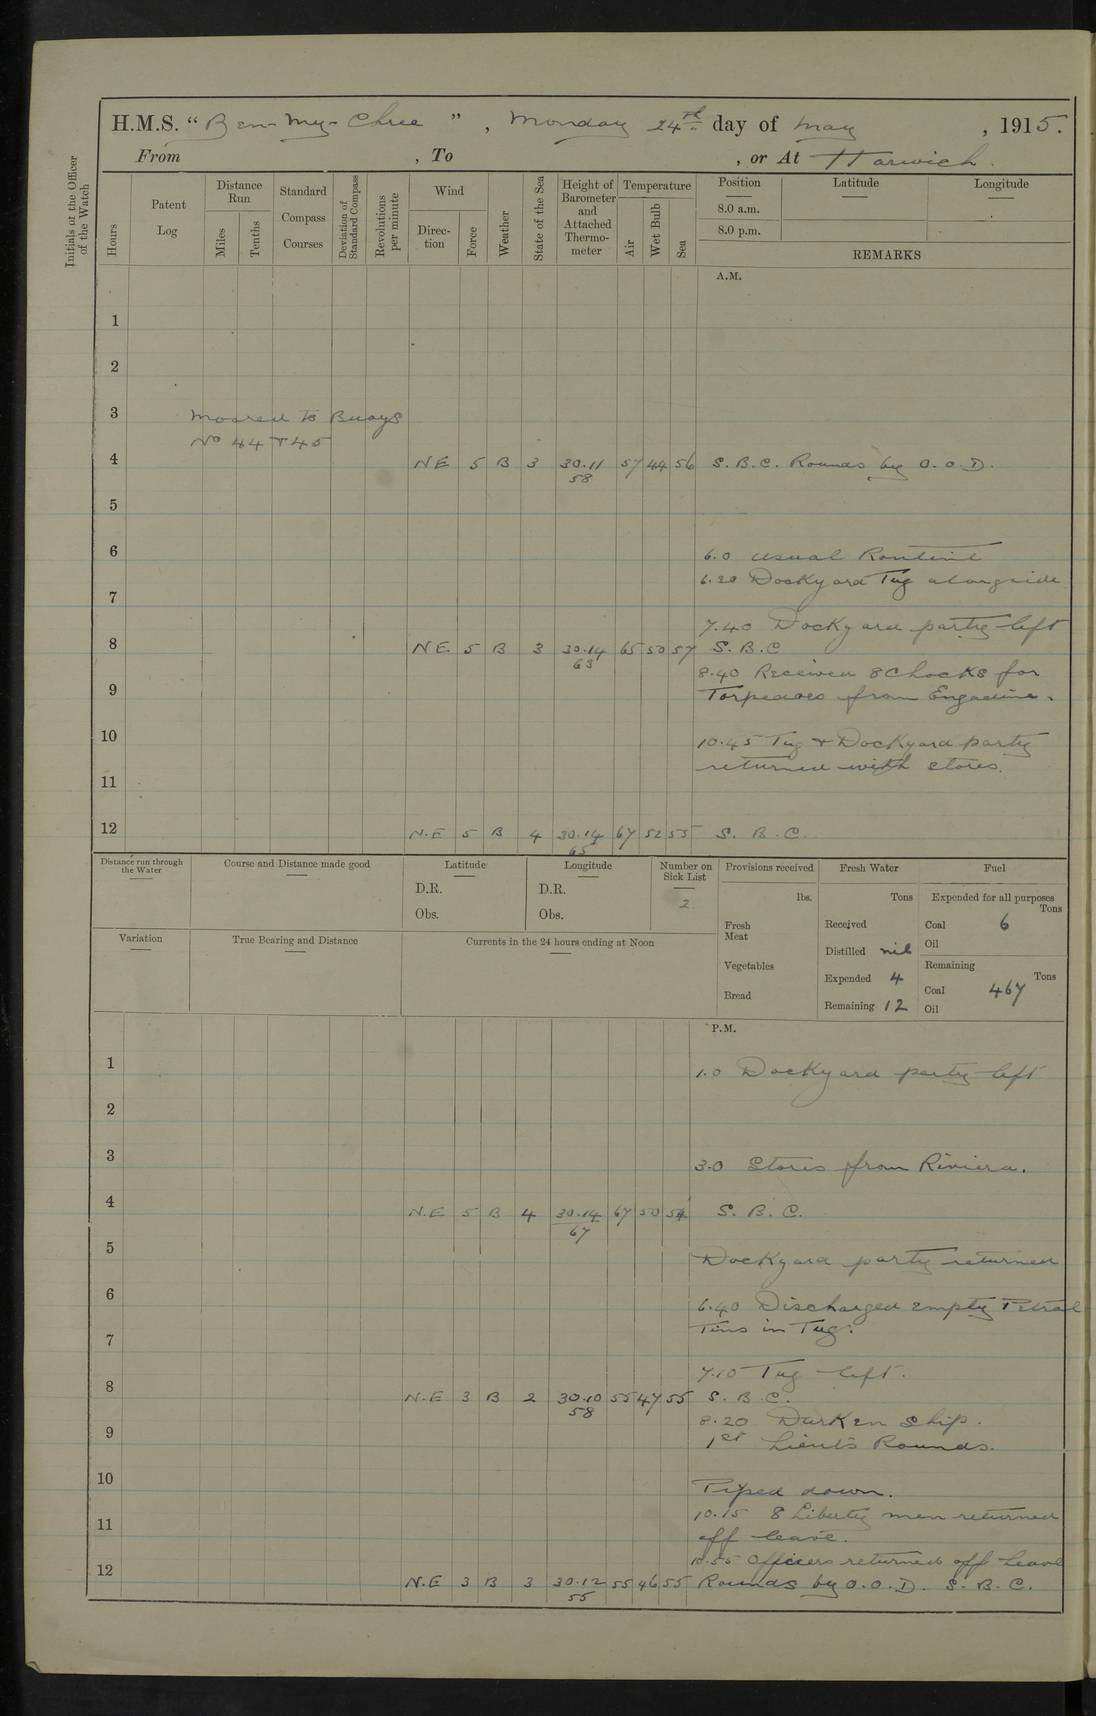 H.M.S. “ Ben-My-Chree ” , Monday 24th day of May , 1915.
From , To , or At Harwich.
Initials of the Officer of the Watch
Hours
Patent Log
Distance Run
Miles
Tenths
Standard Compass Courses
Deviation of Standard Compass
Revolutions per minute
Wind
Direction
Force
Weather
State of the Sea
Height of Barometer and Attached Thermometer
Temperature
Air
Wet Bulb
Sea
Position
8.0 a.m.
8.0 p.m.
Latitude
Longitude
REMARKS
A.M.
1
2
3 Moored to Buoys
No 44 + 45
4 NE 5 B 3 30.11 57 44 56 S. B. C. Rounds by O.O.D.
58
5
6 6.0 Usual Routine
6.20 Dockyard Tug alongside
7
7.40 Dockyard party left
8 NE 5 B 3 30.14 65 50 57 S. B. C
63
8.40 Received 8 Chocks for
9 Torpedoes from Engadine.
10 10.45 Tug + Dockyard party
returned with stores.
11
12 N.E 5 B 4 30.14 67 52 55 S. B. C
65
Distance run through the Water
Course and Distance made good
Latitude
D.R.
Obs.
Longitude
D.R.
Obs.
Number on Sick List
2
Provisions received
lbs.
Fresh Meat
Vegetables
Bread
Fresh Water
Tons
Received
Distilled nil
Expended 4
Remaining 12
Fuel
Expended for all purposes
Tons
Coal 6
Oil
Remaining
Tons
Coal 467
Oil
Variation
True Bearing and Distance
Currents in the 24 hours ending at Noon
P.M.
1 1.0 Dockyard party left
2
3 3.0 Stores from Riviera.
4 N.E 5 B 4 30.14 67 50 54 S. B. C.
67
5 Dockyard party returned
6 6.40 Discharged empty Petrol
Tins in Tug.
7
7.10 Tug left.
8 N.E 3 B 2 30.10 55 47 55 S. B. C.
58
8.20 Darken ship.
9 1st Lieut's Rounds.
10 Piped down.
10.15 8 Liberty men returned
11 off leave.
10.55 Officers returned off leave
12 N.E 3 B 3 30.12 55 46 55 Rounds by O.O.D. S. B. C.
55